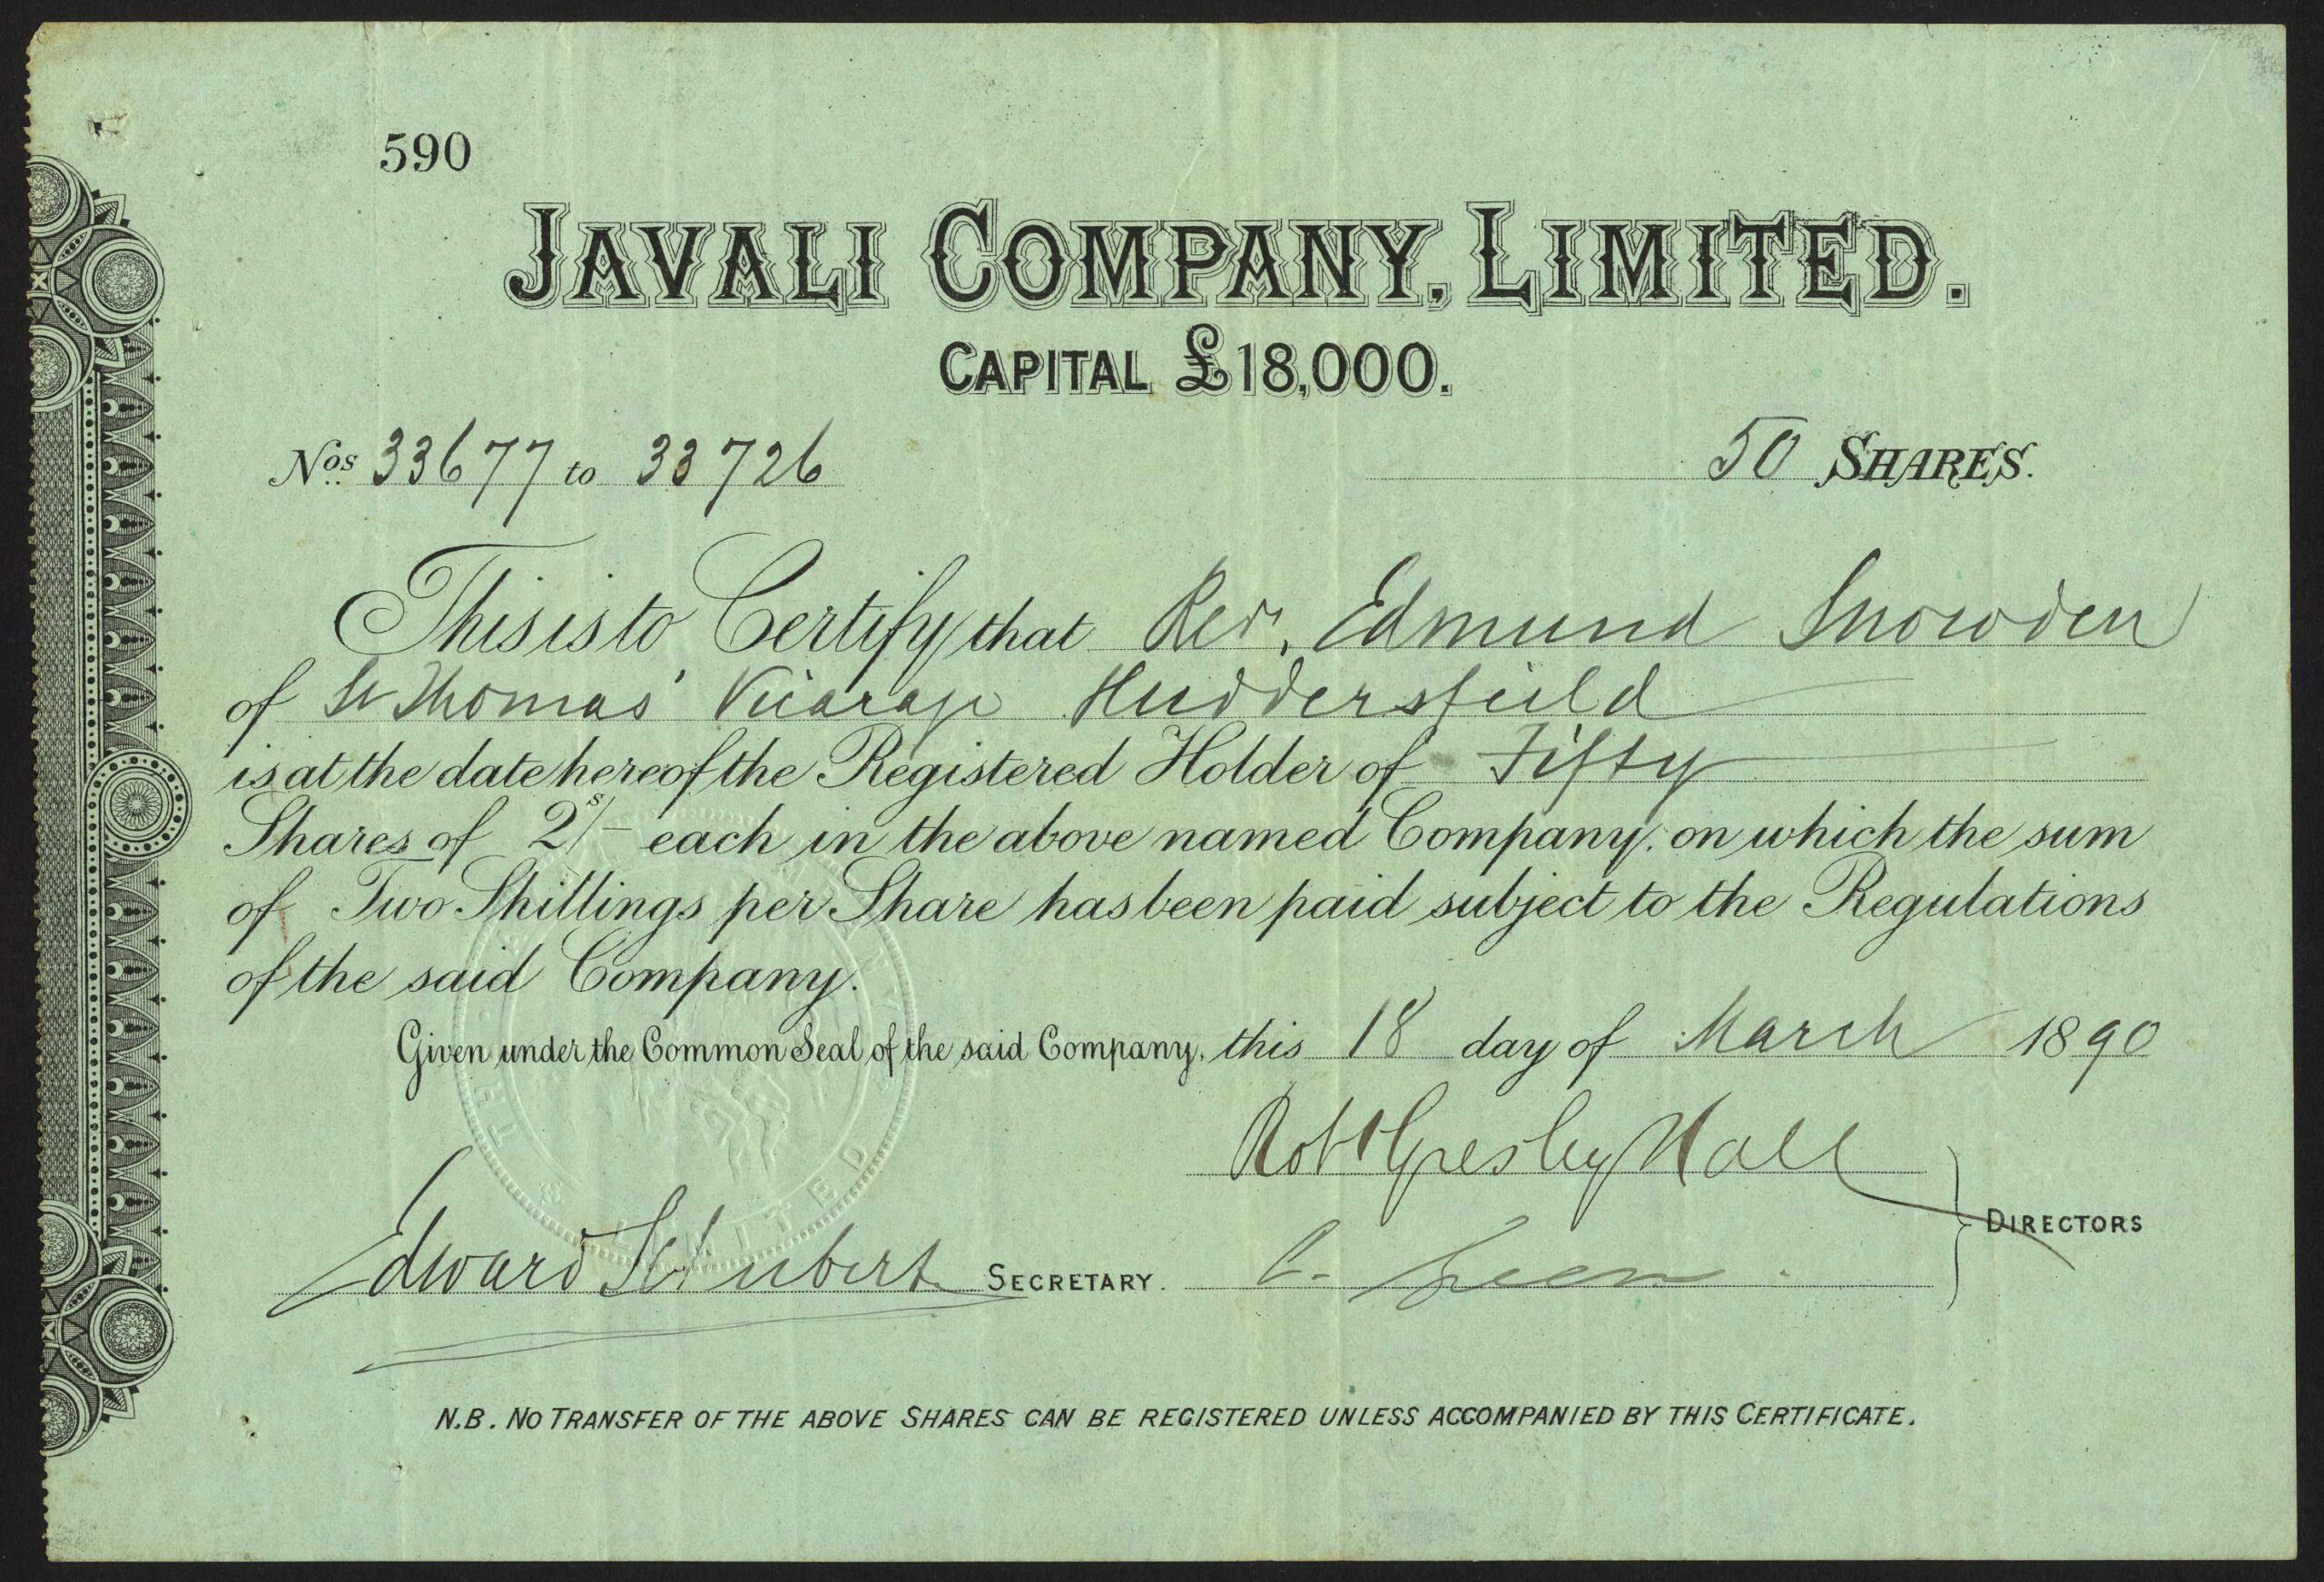 590
JAVALI COMPANY, LIMITED.
CAPITAL £18,000.
Nos. 33677 to 33726 50 SHARES.
This is to Certify that Rev. Edmund Snowden
of St Thomas' Vicarage Huddersfield
is at the date hereof the Registered Holder of Fifty
Shares of 2s/- each in the above named Company; on which the sum
of Two Shillings per Share has been paid subject to the Regulations
of the said Company.
Given under the Common Seal of the said Company, this 18 day of March 1890
Robt Gresley Hall
DIRECTORS
Edward Schubert SECRETARY. C. Green
N.B. NO TRANSFER OF THE ABOVE SHARES CAN BE REGISTERED UNLESS ACCOMPANIED BY THIS CERTIFICATE.